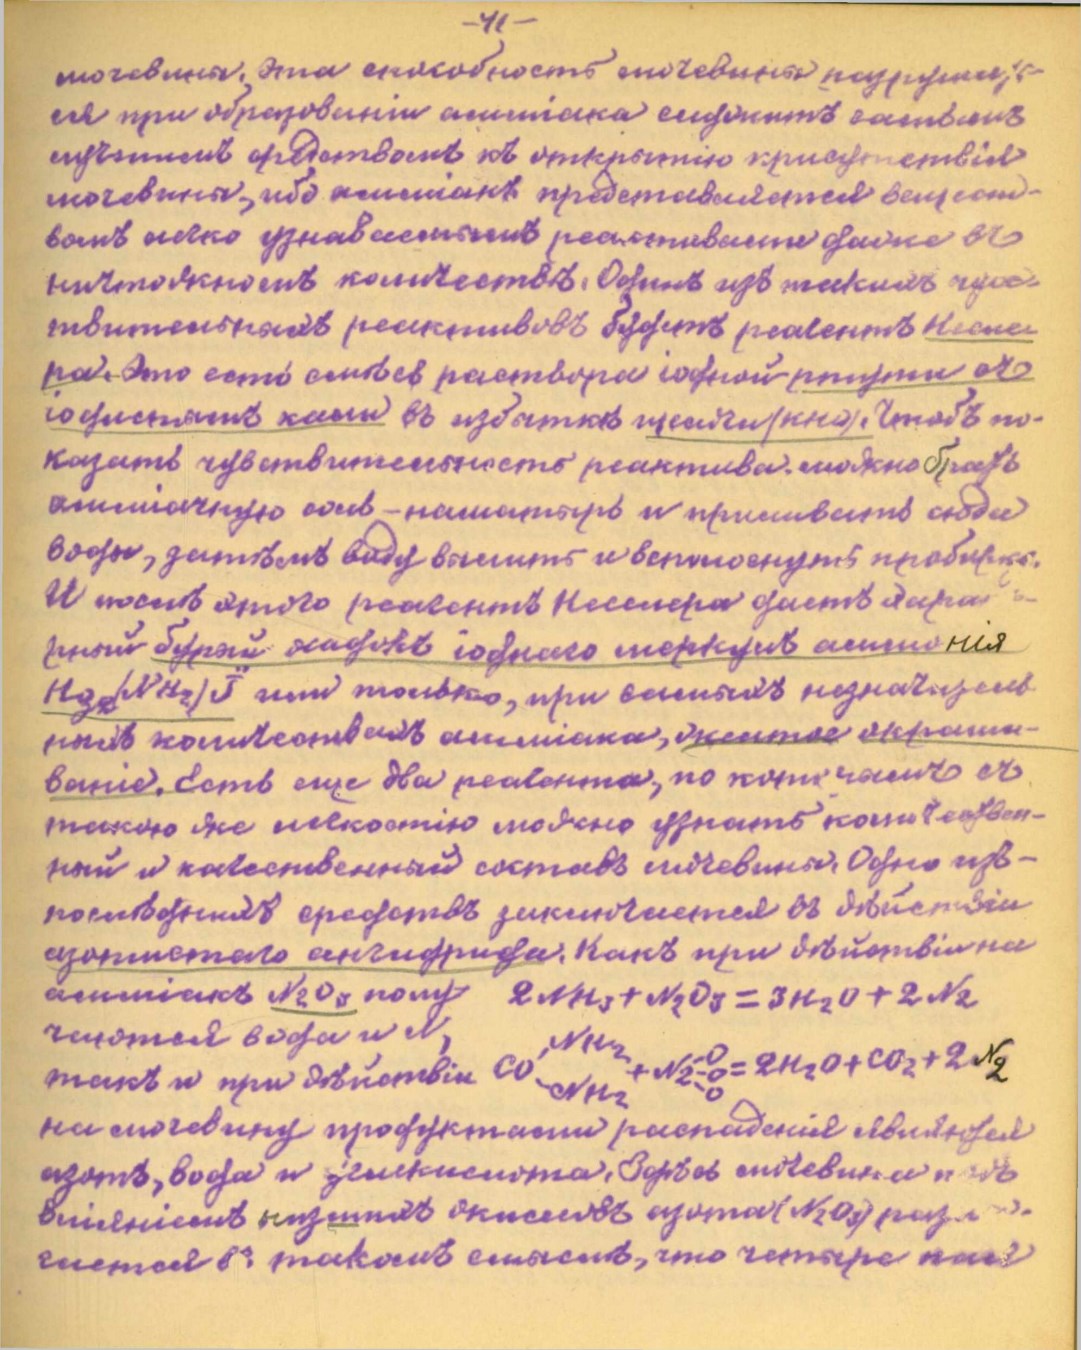 -41-
мочевины. Эта способность мочевины разрушать-
ся при образованіи амміака служитъ самымъ
лучшимъ средствомъ къ открытію присутствія
мочевины, ибо амміакъ представляется вещест-
вомъ легко узнаваемымъ реактивами даже въ
ничтожномъ количествѣ. Однимъ изъ такихъ чувс-
твительныхъ реактивовъ будетъ реагентъ Нессле-
ра. Это есть смѣсь раствора іодной ртути съ
іодистымъ кали въ избыткѣ щелочи (КНО). Чтобъ по-
казать чувствительность реактива можно брать
амміачную соль - нашатырь и приливать сюда
воды, затѣмъ воду вылить и всполоснуть пробирку.
И послѣ этого реагентъ Несслера даетъ характе-
рный бурый осадокъ іоднаго меркуръ аммонія
Hg₂(NH₂)J или только, при самыхъ незначитель
ныхъ количествахъ амміака, желтое окраши-
ваніе. Есть еще два реагента, по которымъ съ
такою же легкостію можно узнать количествен-
ный и качественный составъ мочевины. Одно изъ-
послѣднихъ средствъ заключается въ дѣйствіи
азотистаго ангидрида. Какъ при дѣйствіи на
амміакъ N₂O₃ полу 2NH₃ + N₂O₃ = 3H₂O + 2N₂
чаются вода и N,
такъ и при дѣйствіи CO NH₂ NH₂ + N₂ O O O = 2H₂O + CO₂ + 2N₂
на мочевину продуктами распаденія являются
азотъ, вода и углекислота. Здѣсь мочевина подъ
вліяніемъ низшихъ окисловъ азота (N₂O₃)
чается въ такомъ смыслѣ, что четыре